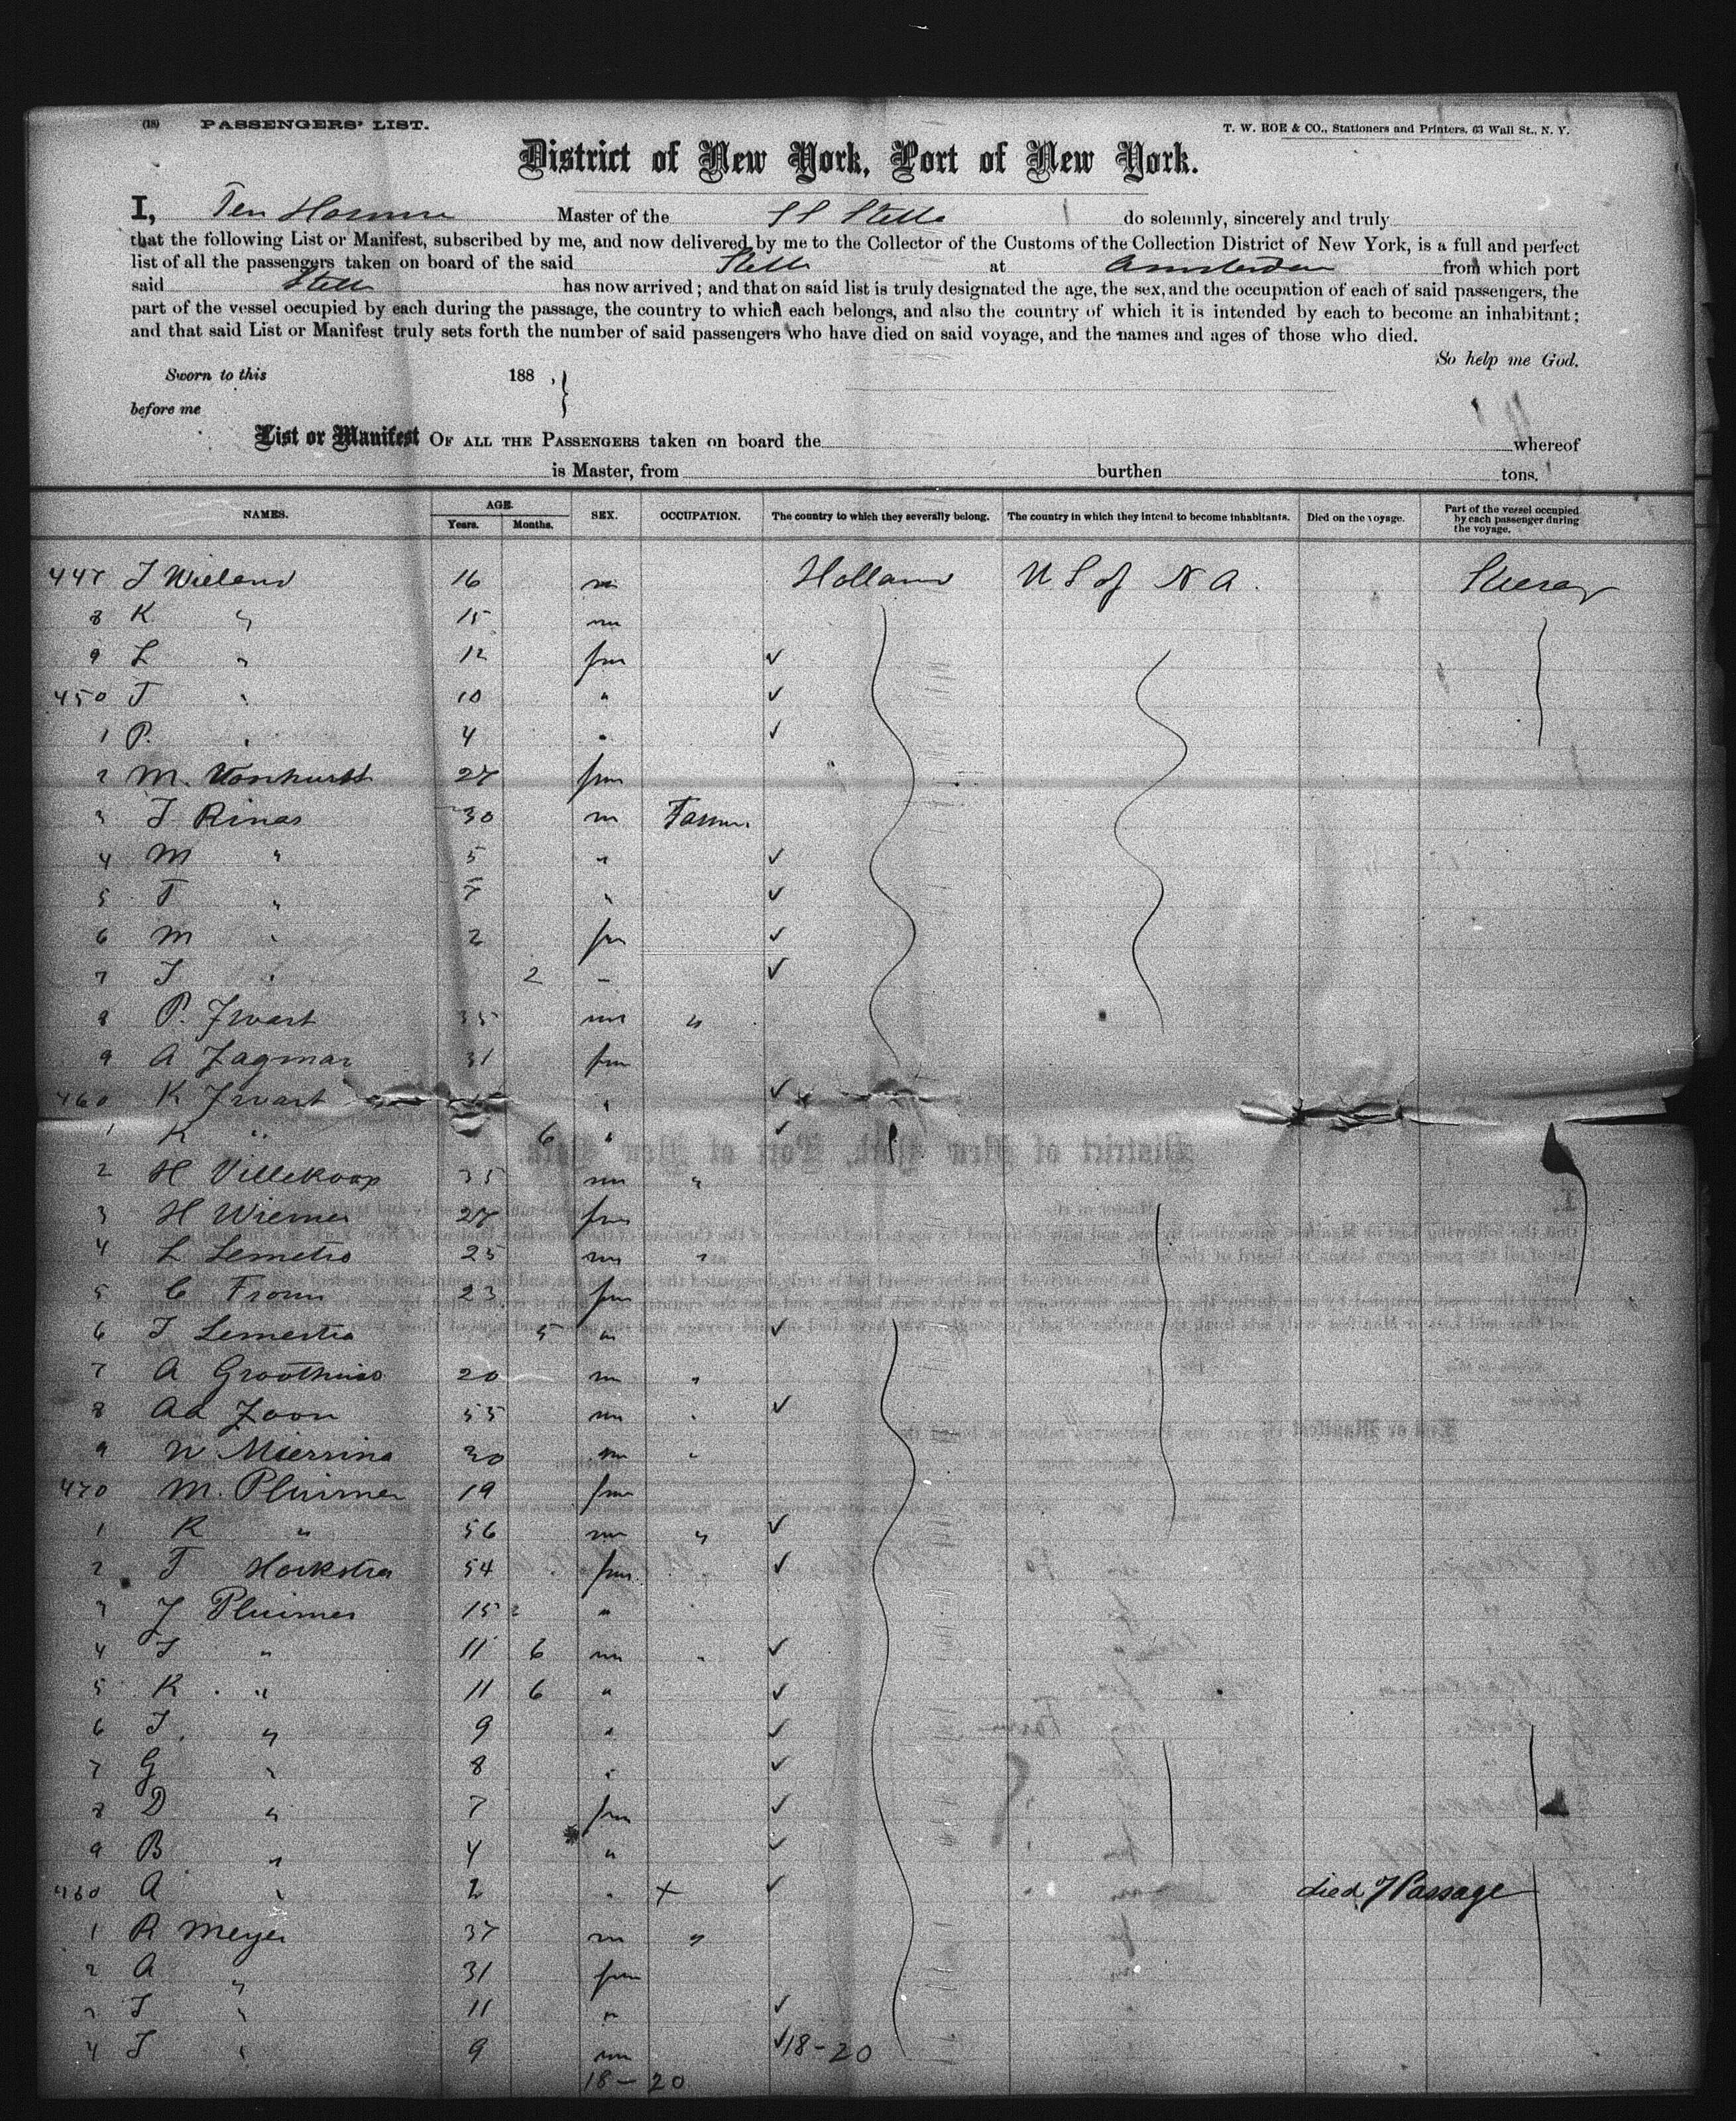 (18) PASSENGERS' LIST. T. W. ROE & CO., Stationers and Printers, 63 Wall St., N. Y.
District of New York, Port of New York.
I, Ten Master of the SS Stella do solemnly, sincerely and truly
that the following List or Manifest, subscribed by me, and now delivered by me to the Collector of the Customs of the Collection District of New York, is a full and perfect
list of all the passengers taken on board of the said Stella at Amsterdam from which port
said Stella has now arrived; and that on said list is truly designated the age, the sex, and the occupation of each of said passengers, the
part of the vessel occupied by each during the passage, the country to which each belongs, and also the country of which it is intended by each to become an inhabitant;
and that said List or Manifest truly sets forth the number of said passengers who have died on said voyage, and the names and ages of those who died.
So help me God.
Sworn to this 188 ,
before me
List or Manifest OF ALL THE PASSENGERS taken on board the whereof
is Master, from burthen tons.
NAMES. AGE. Years. Months. SEX. OCCUPATION. The country to which they severally belong. The country in which they intend to become inhabitants. Died on the voyage. Part of the vessel occupied by each passenger during the voyage.
447 J Wieland 16 m Holland U S of N A. Steerage
8 K " 15 m
9 L " 12 fm ✓
450 J " 10 " ✓
1 P. " 4 " ✓
2 M. Vonhurst 27 fm
3 J Rinas 30 m Farmer
4 M " 5 " ✓
5 T " 7 " ✓
6 M " 2 fm ✓
7 J " 2 " ✓
8 P. Zwart 35 m "
9 A Zagmar 31 fm
460 K Zwart " ✓
1 K " 6 " ✓
2 H Villekoop 35 m "
3 H Wiemer 27 fm
4 L Lemstra 25 m "
5 C 23 fm
6 J Lemstra 5 m ✓
7 A Groothuis 20 m "
8 Ad Zoon 55 m " ✓
9 W Miersina 30 m "
470 M. Pluimer 19 fm
1 R " 56 m " ✓
2 T Hoekstra 54 fm ✓
3 J Pluimer 15 "
4 J " 11 6 m " ✓
5 K " 11 6 " ✓
6 J. " 9 " ✓
7 G " 8 " ✓
8 D " 7 fm ✓
9 B " 4 " ✓
480 A " 2 " + ✓ died of Passage
1 R Meyer 37 m "
2 A " 31 fm
3 J " 11 " ✓
4 J " 9 m ✓ 18-20
18-20